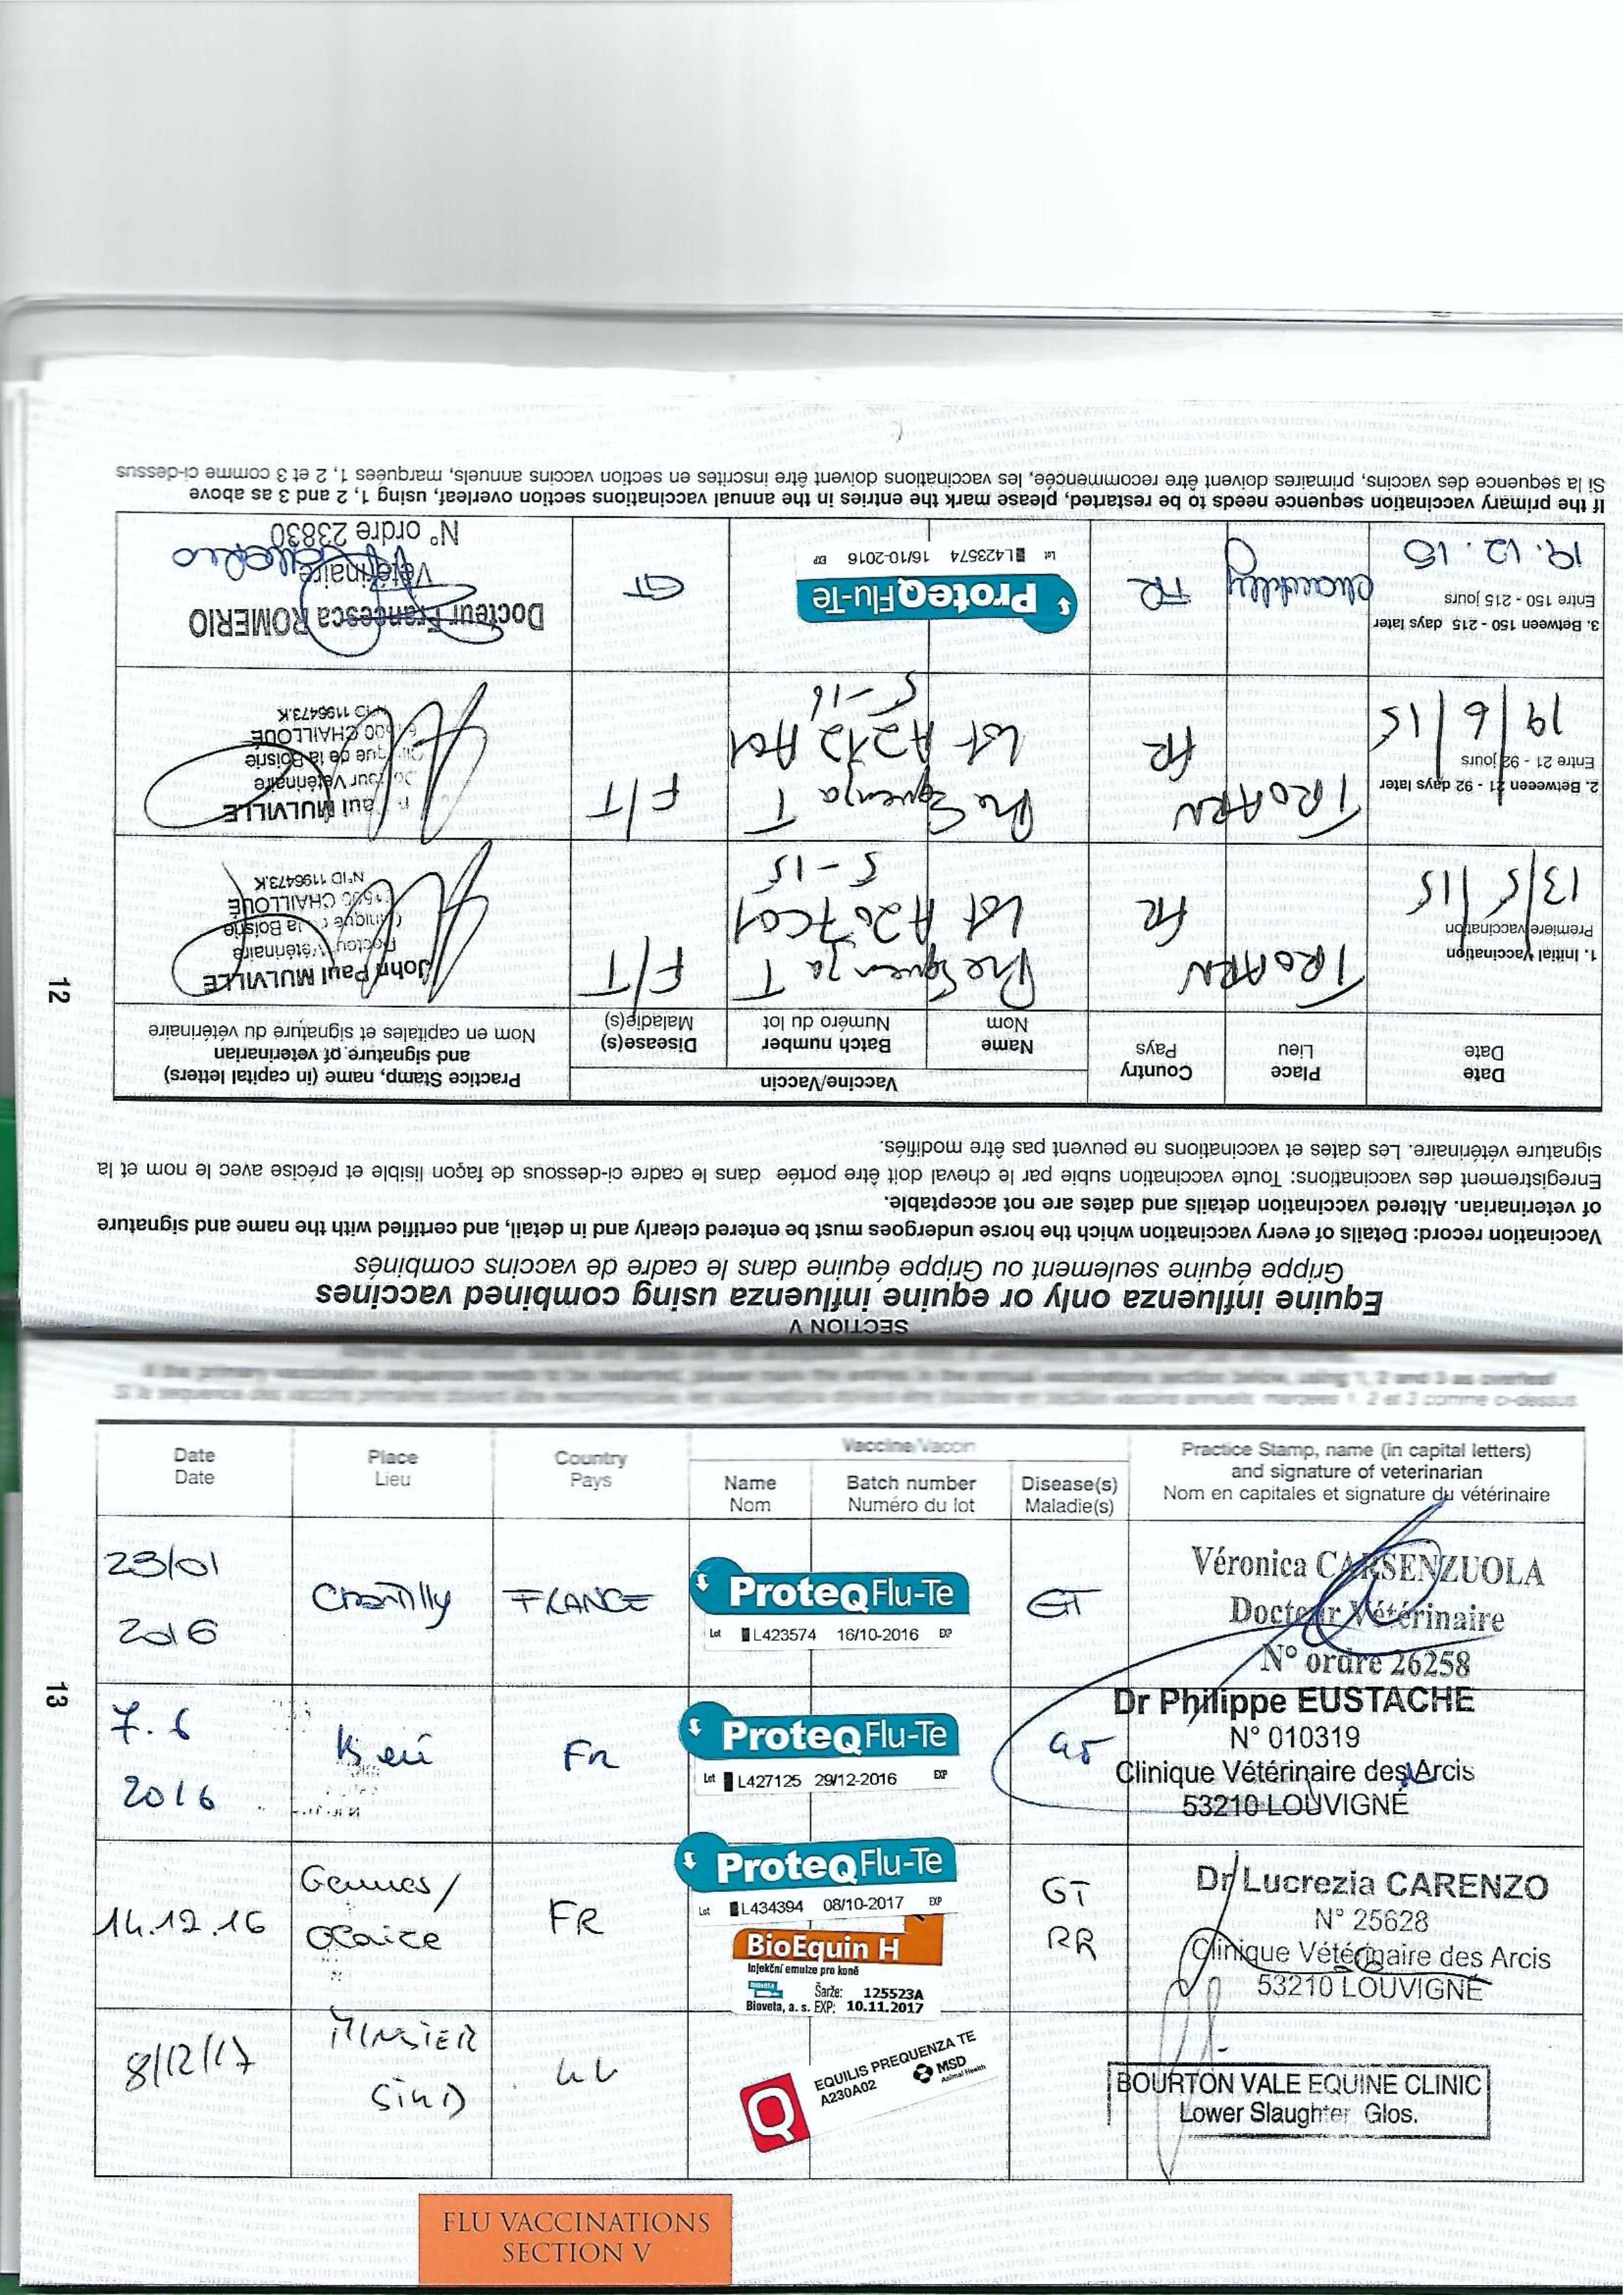 SECTION V
Equine influenza only or equine influenza using combined vaccines
Grippe équine seulement ou Grippe équine dans le cadre de vaccins combinés
Vaccination record: Details of every vaccination which the horse undergoes must be entered clearly and in detail, and certified with the name and signature
of veterinarian. Altered vaccination details and dates are not acceptable.
Enregistrement des vaccinations: Toute vaccination subie par le cheval doit être portée dans le cadre ci-dessous de façon lisible et précise avec le nom et la
signature vétérinaire. Les dates et vaccinations ne peuvent pas être modifiés.
Date
Date
Place
Lieu
Country
Pays
Vaccine/Vaccin
Name
Nom
Batch number
Numéro du lot
Disease(s)
Maladie(s)
Practice Stamp, name (in capital letters)
and signature of veterinarian
Nom en capitales et signature du vétérinaire
1. Initial Vaccination
Première vaccination
13/5/15
TROARN
FR
PreQuenza T
Lot A207C01
5-15
F/T
John Paul MULVILLE
Docteur Vétérinaire
Clinique de la Boisrie
CHAILLOUÉ
N°ID 1196473.K
2. Betweeen 21 - 92 days later
Entre 21 - 92 jours
19/6/15
TROARN
FR
PreQuenza T
Lot A212A01
5-16
F/T
MULVILLE
Vétérinaire
de la Boisrie
CHAILLOUÉ
1196473.K
3. Between 150 - 215 days later
Entre 150 - 215 jours
19.12.15
Chantilly
FR
ProteqFlu-Te
Lot L423574 16/10-2016 EXP
GT
Docteur Francesca ROMERIO
Vétérinaire
N° ordre 23830
If the primary vaccination sequence needs to be restarted, please mark the entries in the annual vaccinations section overleaf, using 1, 2 and 3 as above
Si la séquence des vaccins, primaires doivent être recommencée, les vaccinations doivent être inscrites en section vaccins annuels, marquées 1, 2 et 3 comme ci-dessus
12
If the primary vaccination sequence needs to be restarted, please mark the entries in the annual vaccinations section below, using 1, 2 and 3 as overleaf
Si la sequence des vaccins primaires doivent être recommencée, les vaccinations doivent être inscrites en section vaccins annuels, marquées 1, 2 et 3 comme ci-dessus
Date
Date
Place
Lieu
Country
Pays
Vaccine/Vaccin
Name
Nom
Batch number
Numéro du lot
Disease(s)
Maladie(s)
Practice Stamp, name (in capital letters)
and signature of veterinarian
Nom en capitales et signature du vétérinaire
23/01
2016
Chantilly
FRANCE
ProteqFlu-Te
Lot L423574 16/10-2016 EXP
GT
Véronica CARSENZUOLA
Docteur Vétérinaire
N° ordre 26258
7.6
2016
FR
ProteqFlu-Te
Lot L427125 29/12-2016 EXP
GT
Dr Philippe EUSTACHE
N° 010319
Clinique Vétérinaire des Arcis
53210 LOUVIGNÉ
14.12.16
Gennes/
FR
ProteqFlu-Te
Lot L434394 08/10-2017 EXP
BioEquin H
Injekční emulze pro koně
bioveta
Šarže: 125523A
Bioveta, a. s. EXP: 10.11.2017
GT
RR
Dr Lucrezia CARENZO
N° 25628
Clinique Vétérinaire des Arcis
53210 LOUVIGNÉ
8/12/17
Q
EQUILIS PREQUENZA TE
A230A02
MSD
Animal Health
BOURTON VALE EQUINE CLINIC
Lower Slaughter Glos.
13
FLU VACCINATIONS
SECTION V